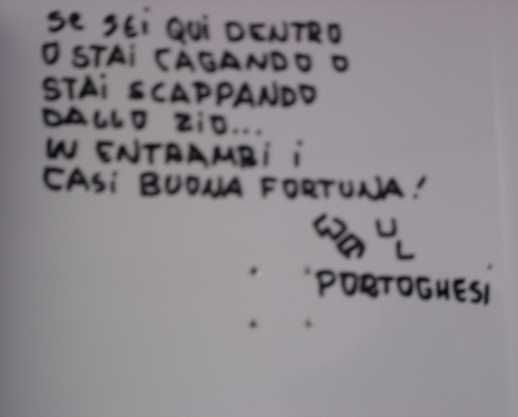 SE SEI QUI DENTRO
O STAI CAGANDO O
STAI SCAPPANDO
DALLO ZIO...
IN ENTRAMBI I
CASI BUONA FORTUNA!
PORTOGHESI